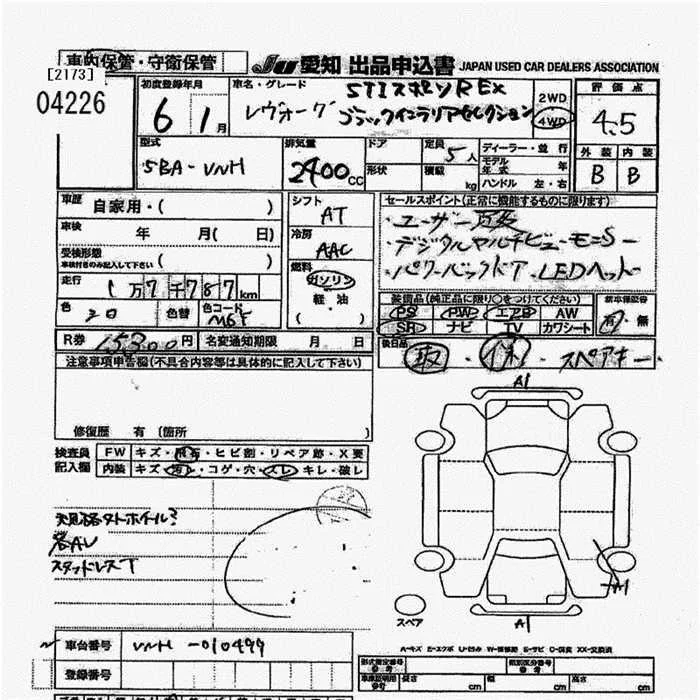 車内保管・守衛保管
[2173]
JU 愛知 出品申込書 JAPAN USED CAR DEALERS ASSOCIATION
04226
初度登録年月
6 1月
車名・グレード
STIスポーツR EX
レヴォーグ ブラックインテリアセレクション
2WD
4WD
評価点
4.5
型式
5BA-VNH
排気量
2400cc
ドア
形状
定員
5人
積載
kg
ディーラー・並行
モデル年式 年
ハンドル 左・右
外装 内装
B B
車歴 自家用・( )
車検 年 月( 日)
受検形態
車検付きのみ記入して下さい ( )
走行 1万7千787km
色
色替
色コード
R券 15300円 名変通知期限 月 日
シフト
AT
冷房
AAC
燃料
ガソリン
軽・油
( )
セールスポイント(正常に機能するものに限ります)
ユーザー買取
デジタルマルチビューモニター
パワーバックドア LEDヘッド
装備品(純正品に限り○をつけてください)
PS PW エアB AW
SR ナビ TV カワシート
新車保証書
有・無
後日品
取・保 スペアキー
注意事項申告欄(不具合内容等は具体的に記入して下さい)
修復歴 有 (箇所 )
検査員
記入欄
FW キズ・飛石・ヒビ割・リペア跡・X要
内装 キズ・汚レ・コゲ・穴・スレ・キレ・破レ
各AU
スタッドレスT
A1
A1
A1
スペア
A-キズ E-エクボ U-凹み W-補修跡 S-サビ C-腐食 XX-交換済
車台番号 VNH-010499
登録番号
型式指定番号
参考
類別区分番号
参考
車庫証明用
参考
長さ cm 幅 cm 高さ cm